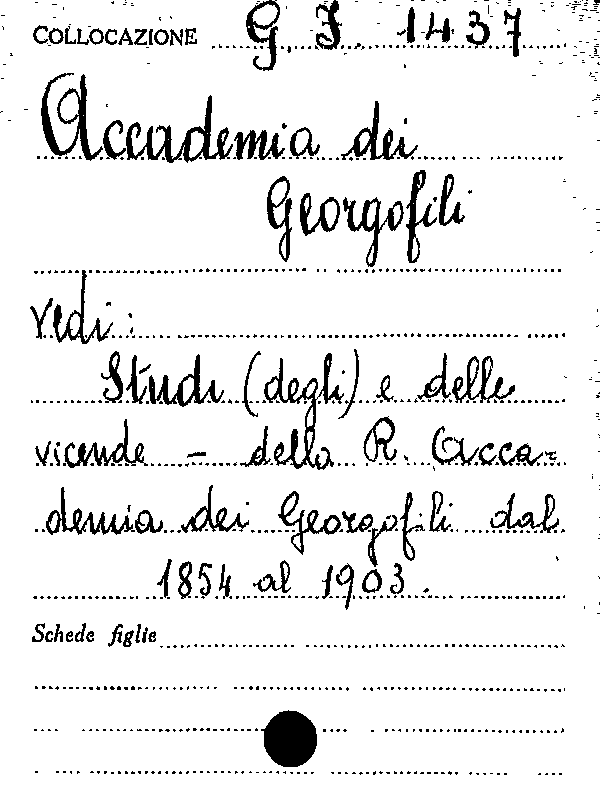 COLLOCAZIONE G. I. 1437
Accademia dei
Georgofili
vedi:
Studi (degli) e delle
vicende - della R. Acca=
demia dei Georgofili dal
1854 al 1903.
Schede figlie